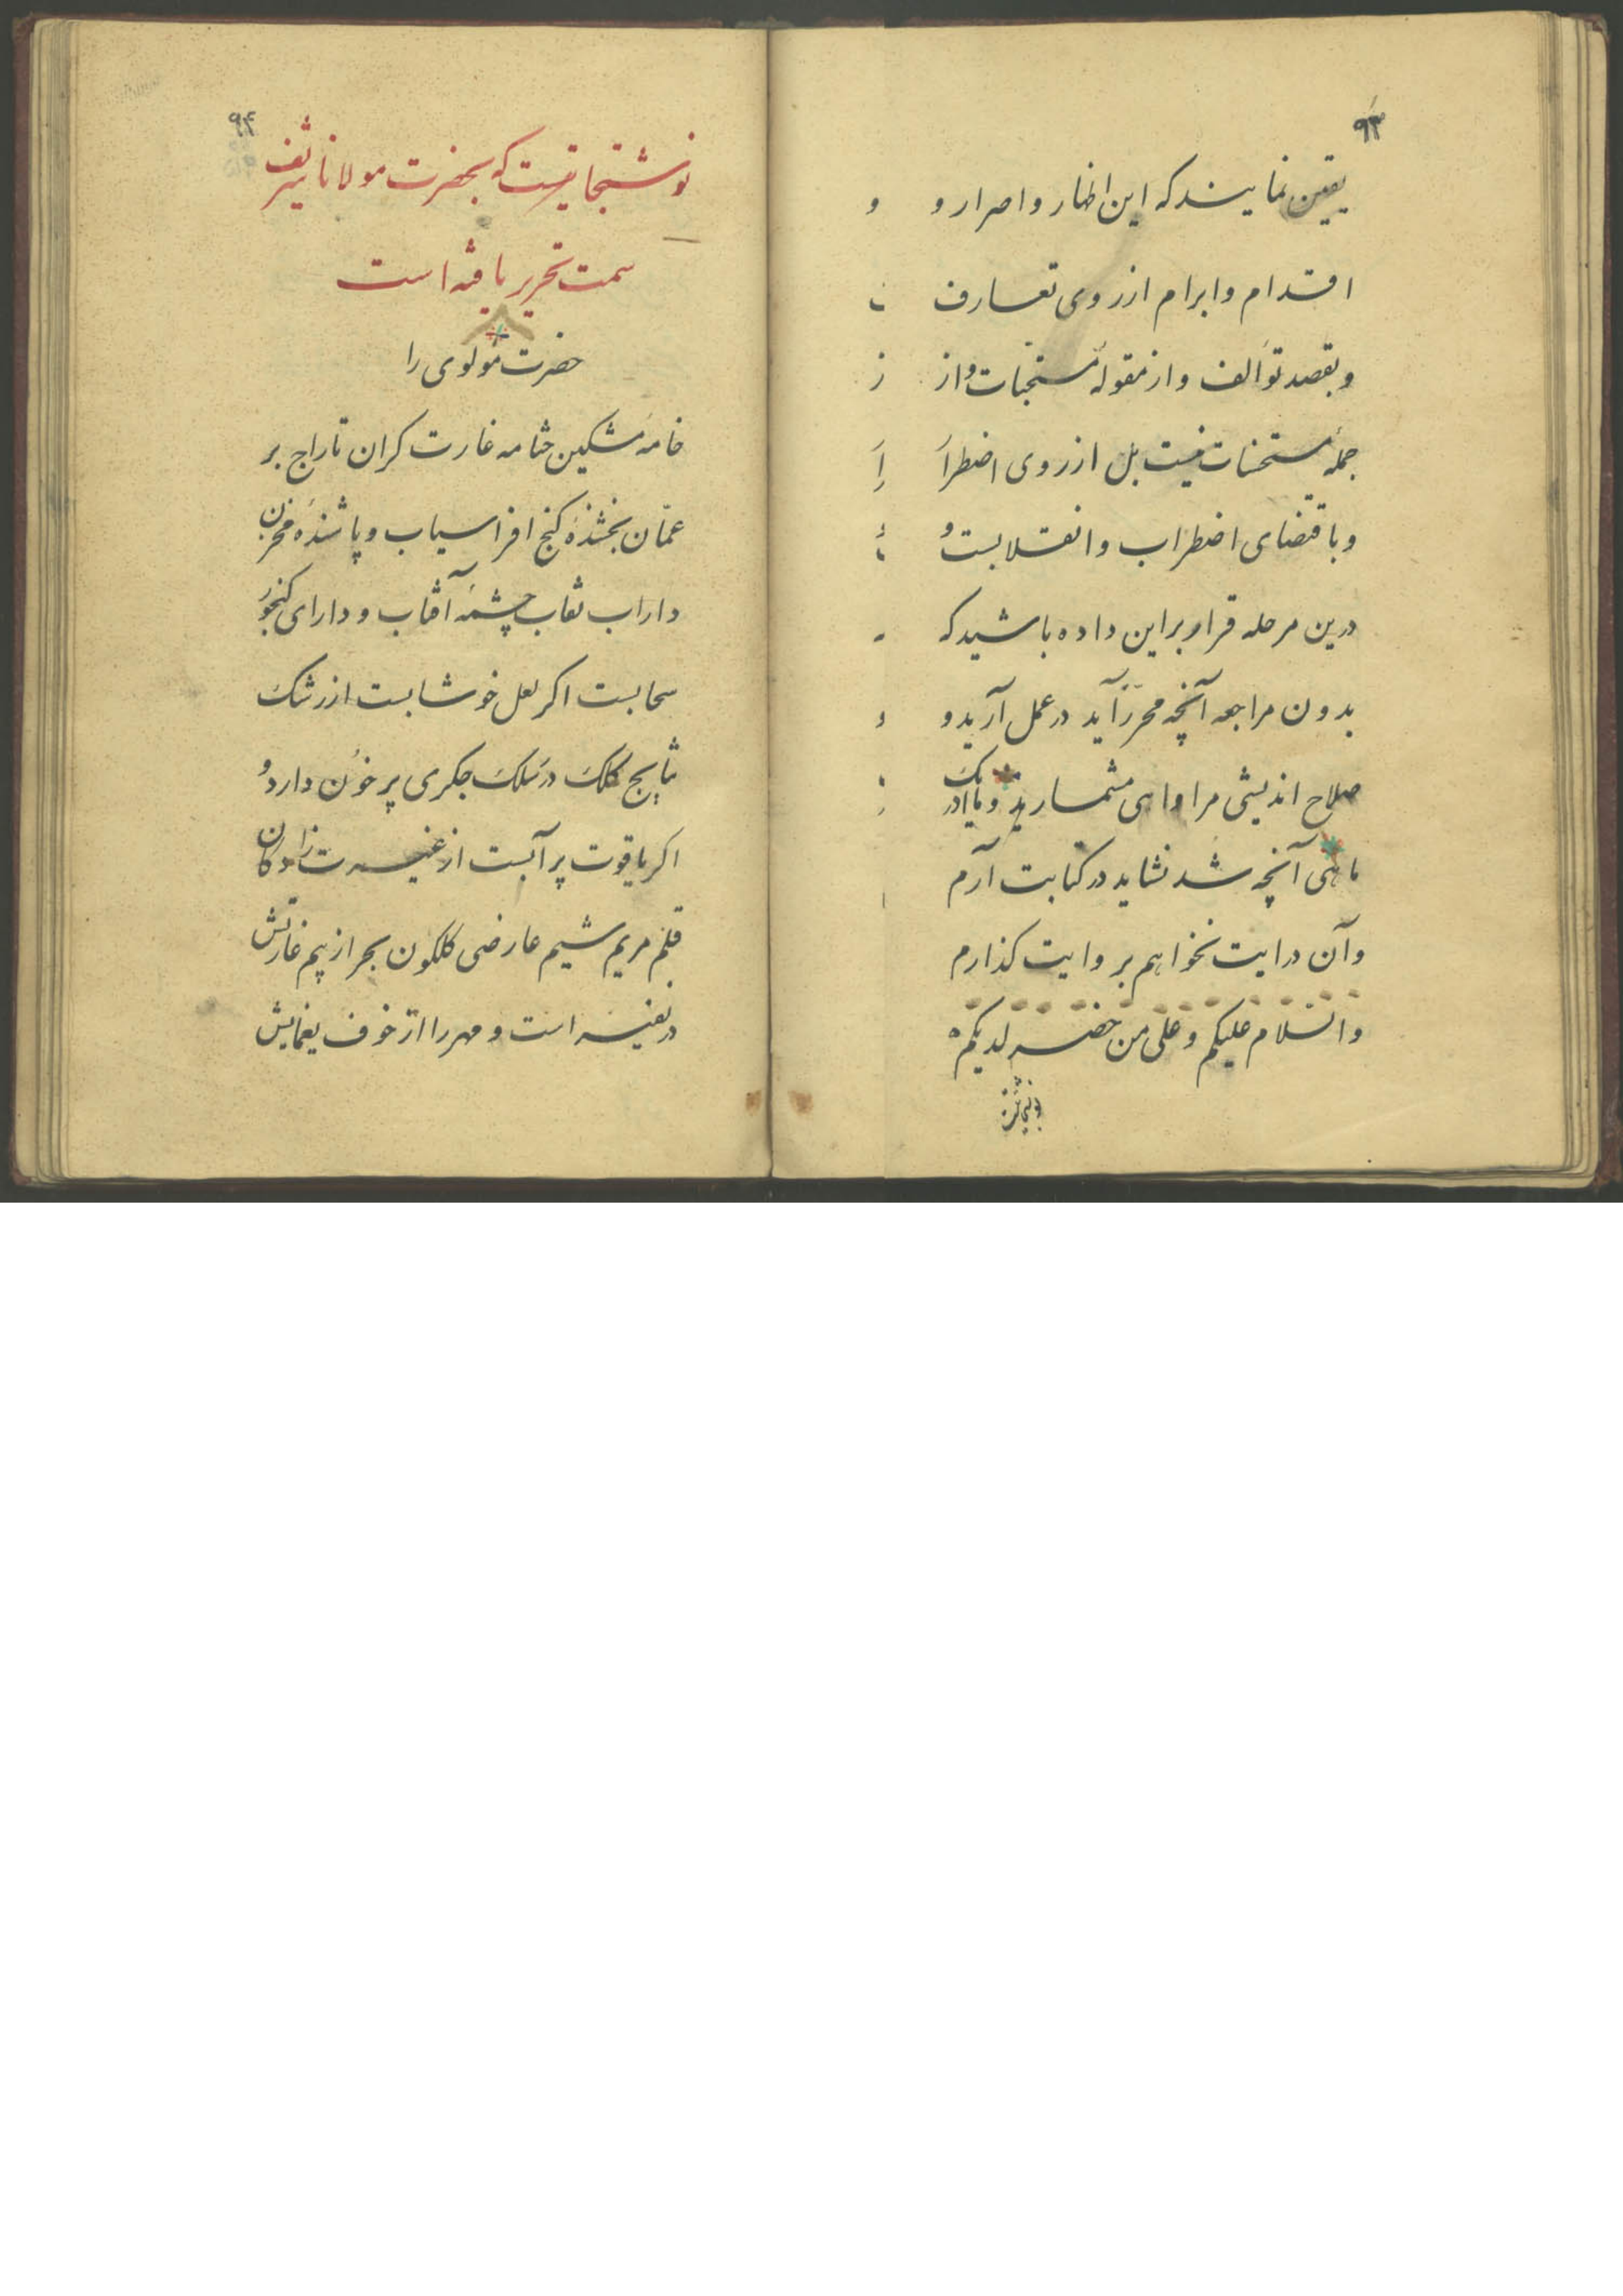 ۹۳
یقین نمایند که این اظهار و اصرار و
اقدام و ابرام از روی تعارف
و بقصد توالف و از مقوله مستحبات و از
جمله مستحسنات نیست بل از روی اضطرا
و باقتضای اضطراب و انقلابست و
درین مرحله قرار براین داده باشید که
بدون مراجعه آنچه محرز آید در عمل آرید و
صلاح اندیشی مرا واهی مشمارید و
ماهی آنچه شد نشاید در کتابت آرم
و آن درایت نخواهم بر وایت کذارم
والسلام علیکم و علی من حضر لدیکم
۹۴
که بحضرت مولانا شریف
سمت تحریر یافته است
حضرت مولوی را
خامه مشکین ختامه غارت کران تاراج بر
عمّان بخشندهٔ کنج افراسیاب و پاشندهٔ مخزن
داراب نقاب چشمه آفتاب و دارای کنجور
سحابست اکر لعل خوشابست از رشک
نتایج کلک در سلک جکری پر خون دارد و
اکر یاقوت پر آبست از غیرت زاد کان
قلم مریم شیم عارضی کلکون بحر از بیم غارتش
در نفیر است و مهر را از خوف یغمایش